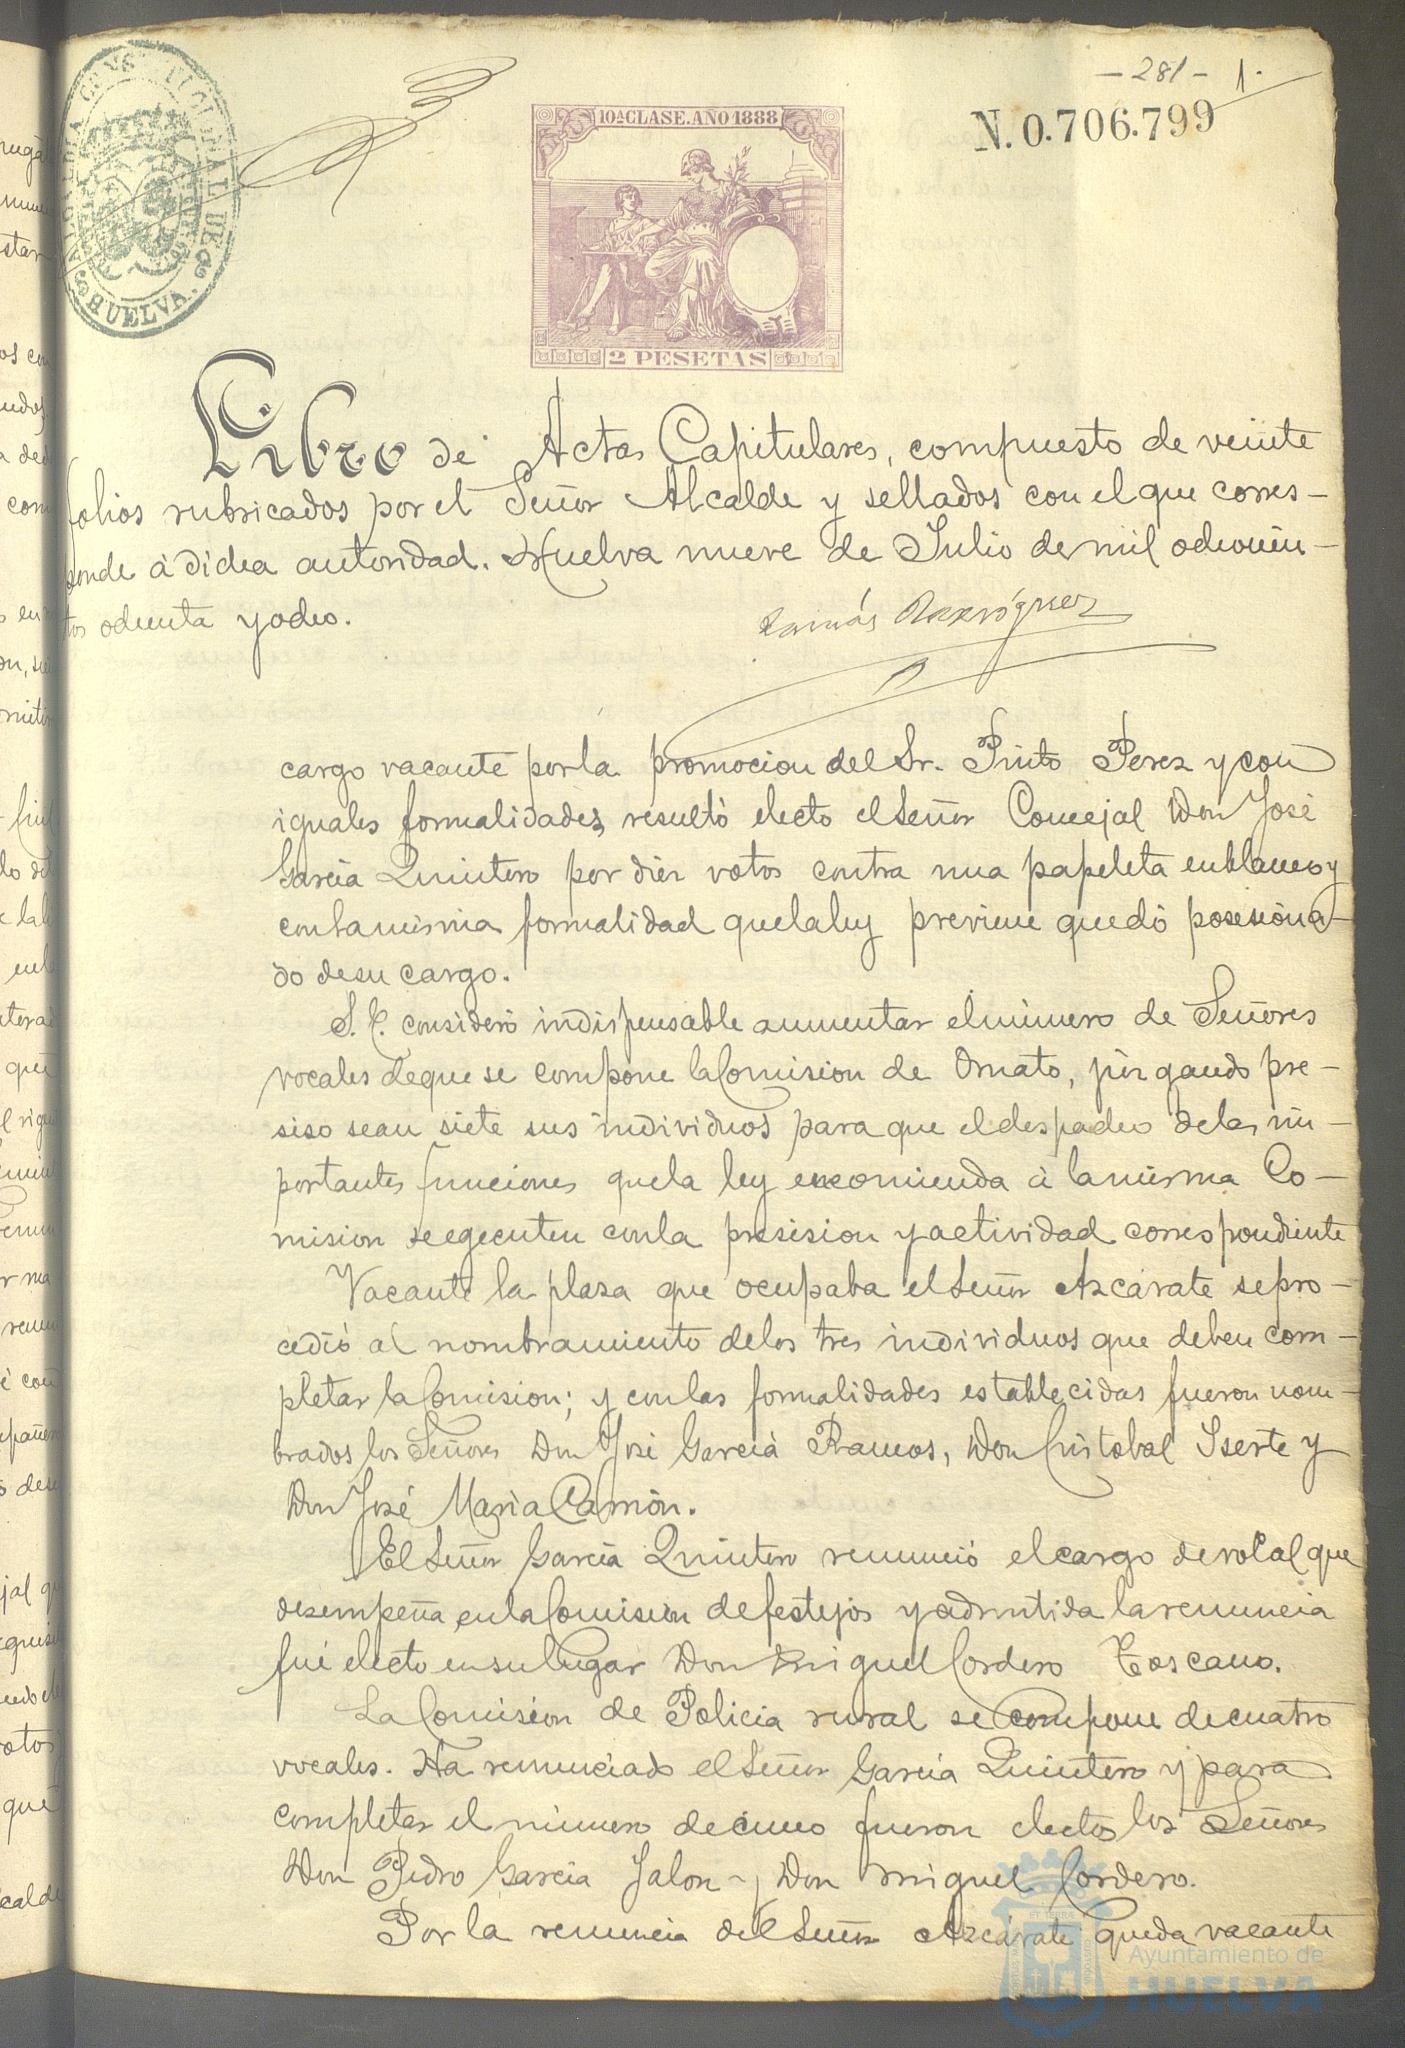 - 281 - 1.
10ª CLASE. AÑO 1888
N. 0.706.799
ALCALDIA CONSTITUCIONAL DE
HUELVA.
2 PESETAS
Libro de Actas Capitulares, compuesto de veinte
folios rubricados por el Señor Alcalde y sellados con el que corres-
ponde á dicha autoridad. Huelva nueve de Julio de mil ochocien-
tos ochenta y ocho.
Tomás Rodríguez
cargo vacante por la promocion del Sr. Pinto Perez y con
iguales formalidades, resultó electo el Señor Concejal Don José
Garcia Quintero por diez votos contra una papeleta en blanco y
con la misma formalidad que la ley previene quedó posesiona-
do de su cargo.
S. E. consideró indispensable aumentar el número de Señores
vocales de que se compone la Comision de Ornato, juzgando pre-
siso sean siete sus individuos para que el despacho de las im-
portantes funciones que la ley encomienda á la misma Co-
mision se egecuten con la presision y actividad correspondiente
Vacante la plaza que ocupaba el Señor Azcárate se pro-
cedió al nombramiento de los tres individuos que deben com-
pletar la Comision; y con las formalidades establecidas fueron nom-
brados los Señores Don José Garcia Ramos, Don Cristobal Iserte y
Don José Maria Camòn.
El Señor Garcia Quintero renunció el cargo de vocal que
desempeña en la Comision de festejos y admitida la renuncia
fué electo en su lugar Don Miguel Cordero Toscano.
La Comision de Policia rural se compone de cuatro
vocales. Ha renunciado el Señor Garcia Quintero y para
completar el número de cinco fueron electos los Señores
Don Pedro Garcia Jalon y Don Miguel Cordero.
Por la renuncia del Señor Azcárate queda vacante
Ayuntamiento de
HUELVA